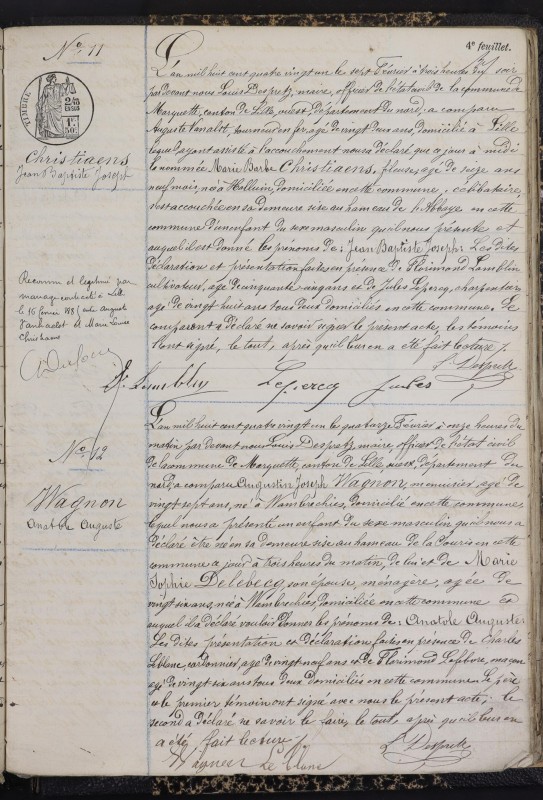 4e feuillet.
No 11
TIMBRE
Christiaens
Jean Baptiste Joseph
Reconnu et légitimé par
mariage contracté à Lille
le 16 février 188 entre Auguste
et Marie Louise
Christiaens
L'an mil huit cent quatre vingt un le sept Février à trois heures du soir
par devant nous Louis Despretz, maire, officier de l'état civil de la commune de
Marquette, canton de Lille, ouest, département du nord, a comparu
Auguste, journalier, agé de vingt deux ans, domicilié à Lille
lequel ayant assisté à l'accouchement nous a déclaré que ce jour à midi
la nommée Marie Barbe Christiaens, fileuse, agée de seize ans
neuf mois, née à Halluin, domiciliée en cette commune, célibataire
est accouchée en sa demeure sise au hameau de l'Abbaye en cette
commune d'un enfant du sexe masculin qu'il nous présente et
auquel il est donné les prénoms de: Jean Baptiste Joseph: Les dites
déclaration et présentation faites en présence de Florimond Lamblin
cultivateur, agé de cinquante ans et de Jules Leclercq, charpentier
agé de vingt huit ans tous deux domiciliés en cette commune. Le
comparant a déclaré ne savoir signer le présent acte, les témoins
l'ont signé, le tout, après qu'il leur en a été fait lecture.
L. Despretz
Fd Lamblin Leclercq Jules
No 12
Wagnon
Anatole Auguste
L'an mil huit cent quatre vingt un le quatorze Février à onze heures du
matin par devant nous Louis Despretz, maire, officier de l'état civil
de la commune de Marquette, canton de Lille, ouest, département du
nord, a comparu Augustin Joseph Wagnon, menuisier, agé de
vingt sept ans, né à Wambrechies, domicilié en cette commune
lequel nous a présenté un enfant du sexe masculin qu'il nous a
déclaré être né en sa demeure sise au hameau de la en cette
commune ce jour à trois heures du matin, de lui et de Marie
Sophie Delebecq, son épouse, ménagère, agée de
vingt six ans, née à Wambrechies, domiciliée en cette commune et
auquel il a déclaré vouloir donner les prénoms de: Anatole Auguste:
Les dites présentation et déclaration faites en présence de Charles
Leblanc, cordonnier, agé de vingt neuf ans et de Florimond Lefebvre, maçon
agé de vingt six ans tous deux domiciliés en cette commune. Le père
et le premier témoin ont signé avec nous le présent acte; le
second a déclaré ne savoir le faire, le tout, après qu'il leur en
a été fait lecture.
L. Despretz
Wagnon Le blanc